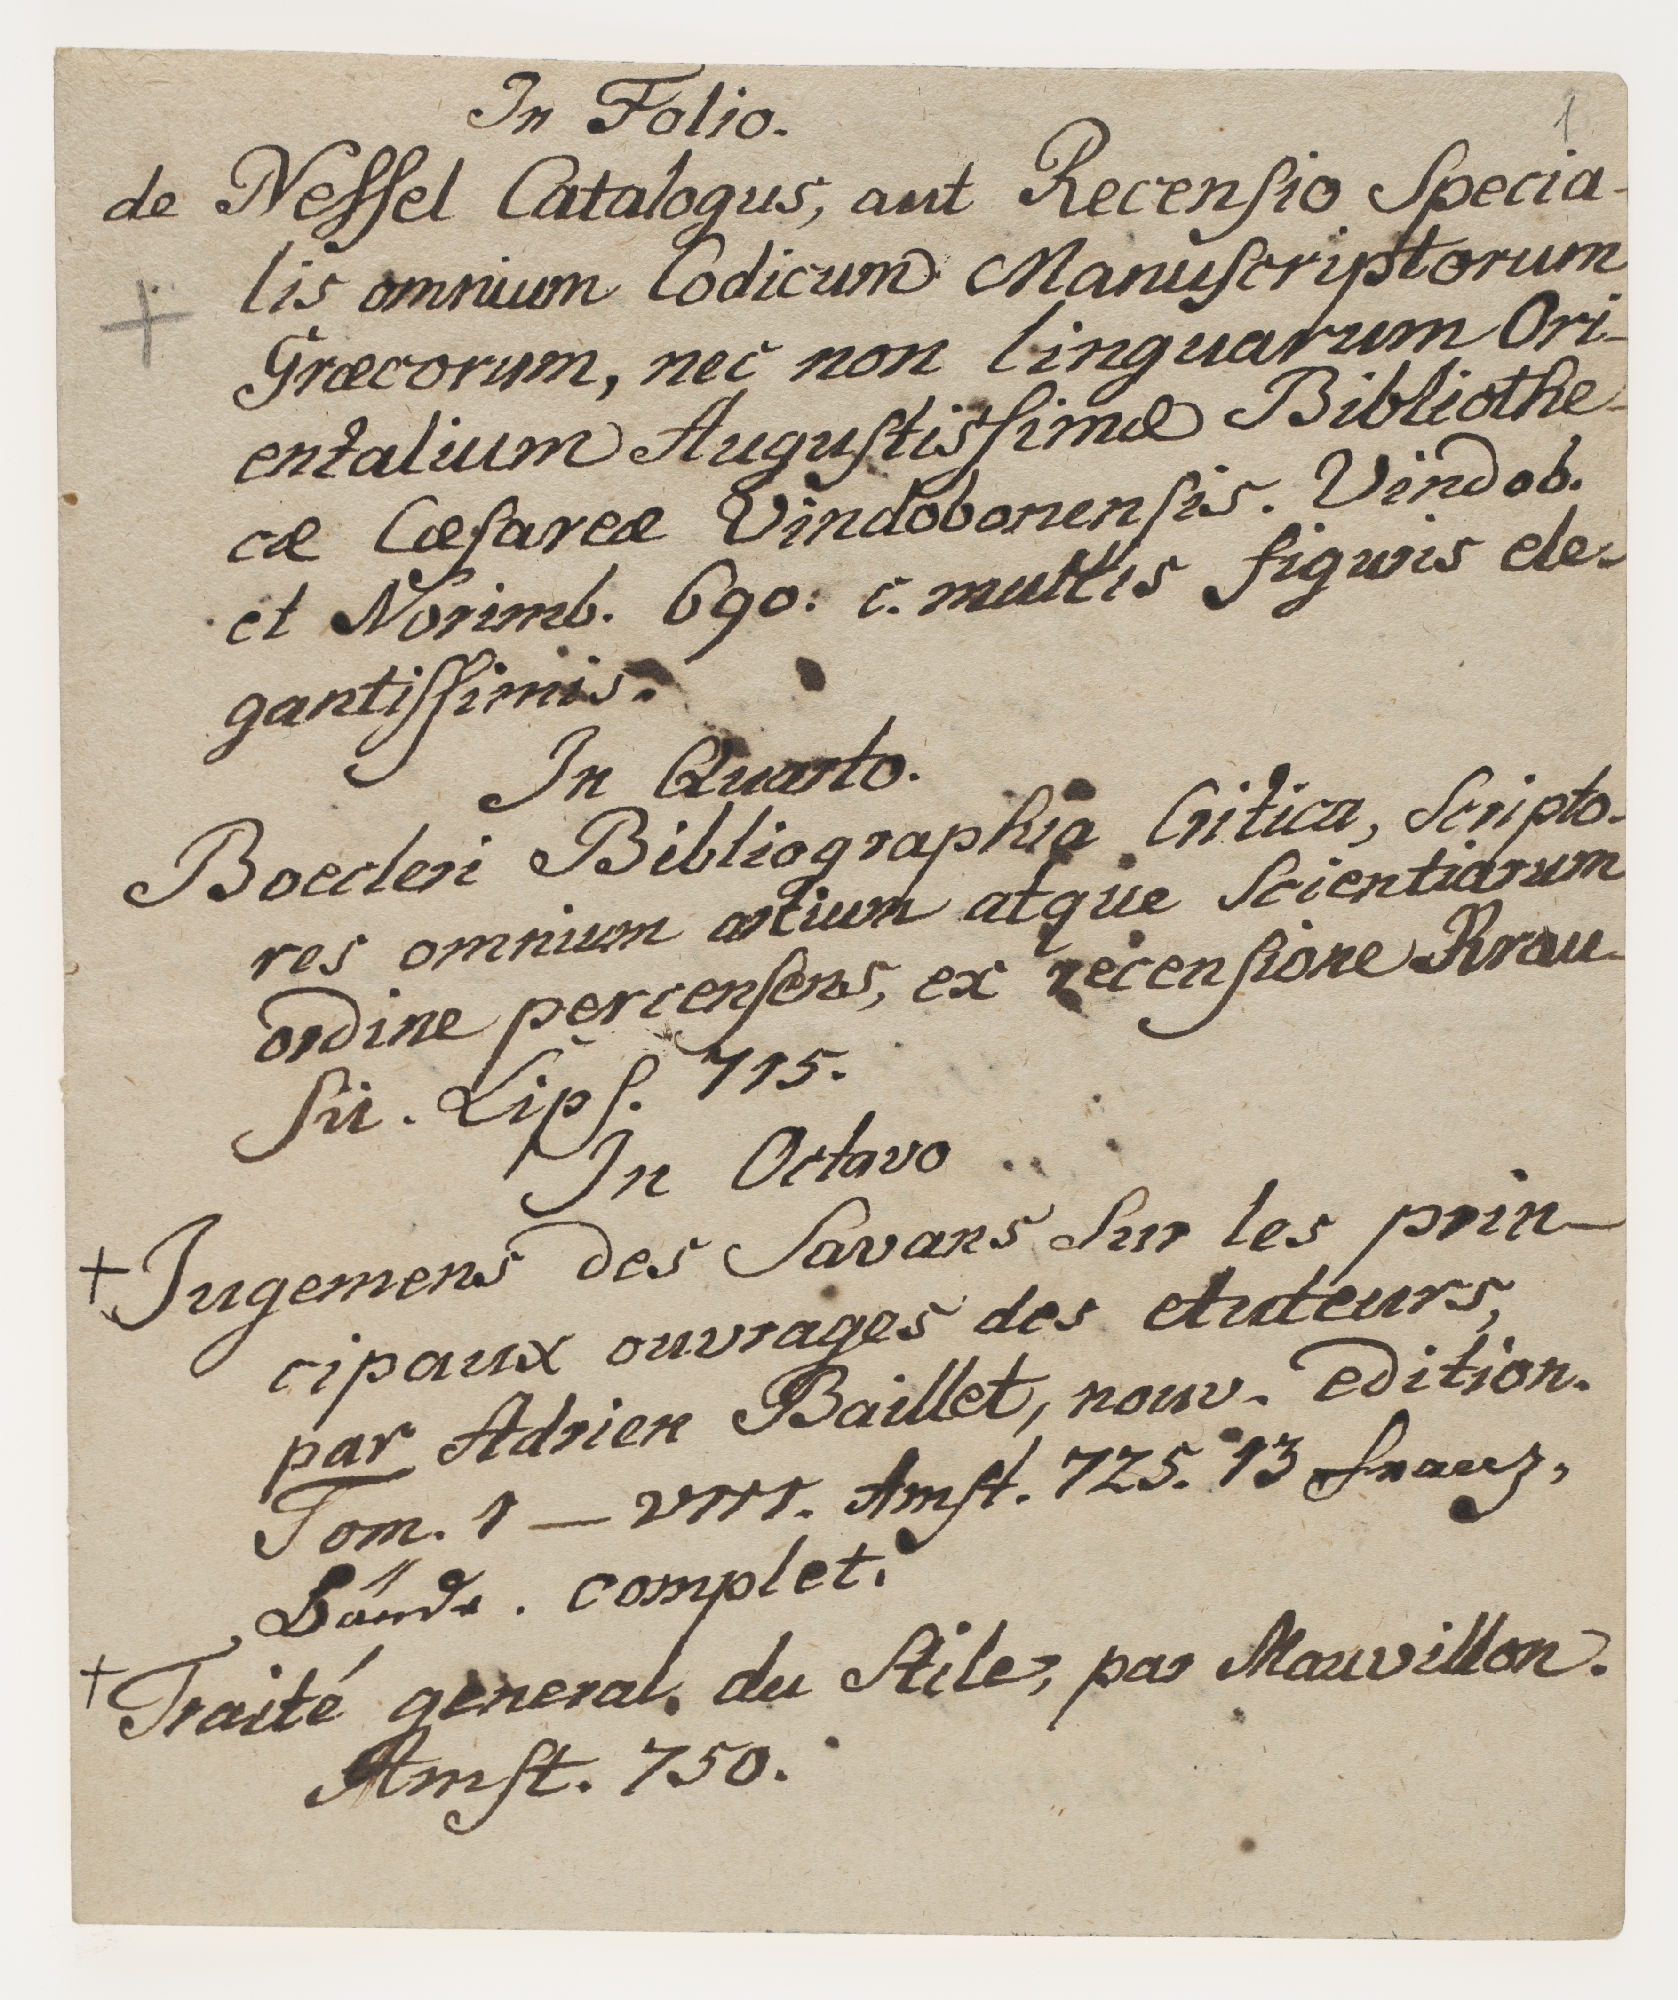 1
In Folio.
de Neſſel Catalogus, aut Recenſio Specia-
lis omnium Codicum Manuſcriptorum
+ Græcorum, nec non linguarum Ori-
entalium Auguſtisſimæ Bibliothe-
cæ Cæſareæ Vindobonenſis. Vindob.
et Norimb. 690. c. multis figuris ele-
gantiſſimis.
In Quarto.
Boecleri Bibliographia Critica, Scripto-
res omnium artium atque Scientiarum
ordine percenſens, ex recenſione Krau-
ſii. Lipſ. 715.
In Octavo
+ Jugemens des Savans Sur les prin-
cipaux ouvrages des Auteurs,
par Adrien Baillet, nouv. edition.
Tom. 1 — VIII. Amſt. 725. 13 franz,
Bände. complet.
+ Traité general. du Stile, par Mauvillon.
Amſt. 750.